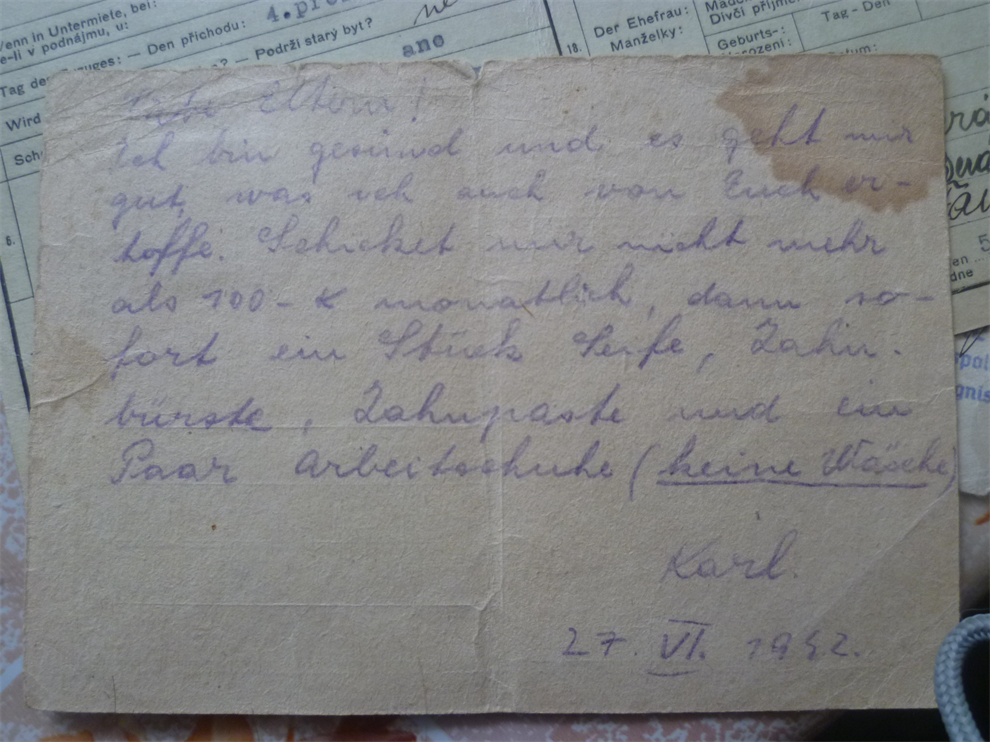 Wenn in Untermiete, bei:
e-li v podnájmu, u:
— Den příchodu:
Tag des
— Podrží starý byt?
ano
Wird
Sch
6.
18.
Der Ehefrau:
Manželky:
Dívčí příjme
Geburts-:
Tag - Den
Liebe Eltern!
Ich bin gesund und es geht mir
gut, was ich auch von Euch er-
hoffe. Schicket mir nicht mehr
als 100-K monatlich, dann so-
fort ein Stück Seife, Zahn-
bürste, Zahnpaste und ein
Paar Arbeitschuhe (keine Wäsche)
Karl.
27. VI. 1942.